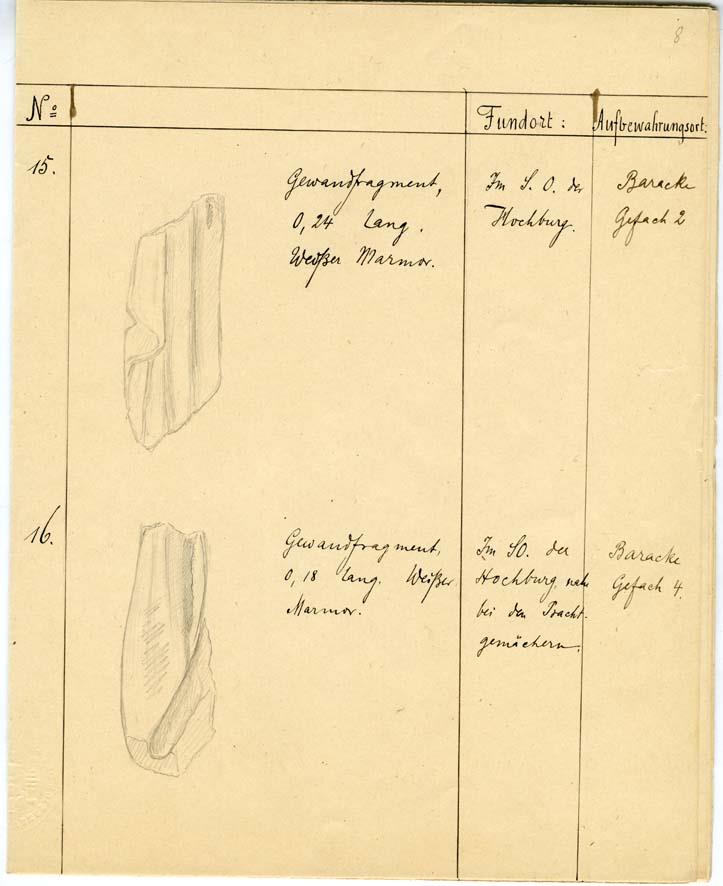 8
Nº Fundort: Aufbewahrungsort:
15.
Gewandfragment,
0,24 lang.
Weißer Marmor.
Im S. O. der
Hochburg.
Baracke
Gefach 2
16.
Gewandfragment,
0,18 lang. Weißer
Marmor.
Im SO. der
Hochburg, nahe
bei den Pracht-
gemächern.
Baracke
Gefach 4.